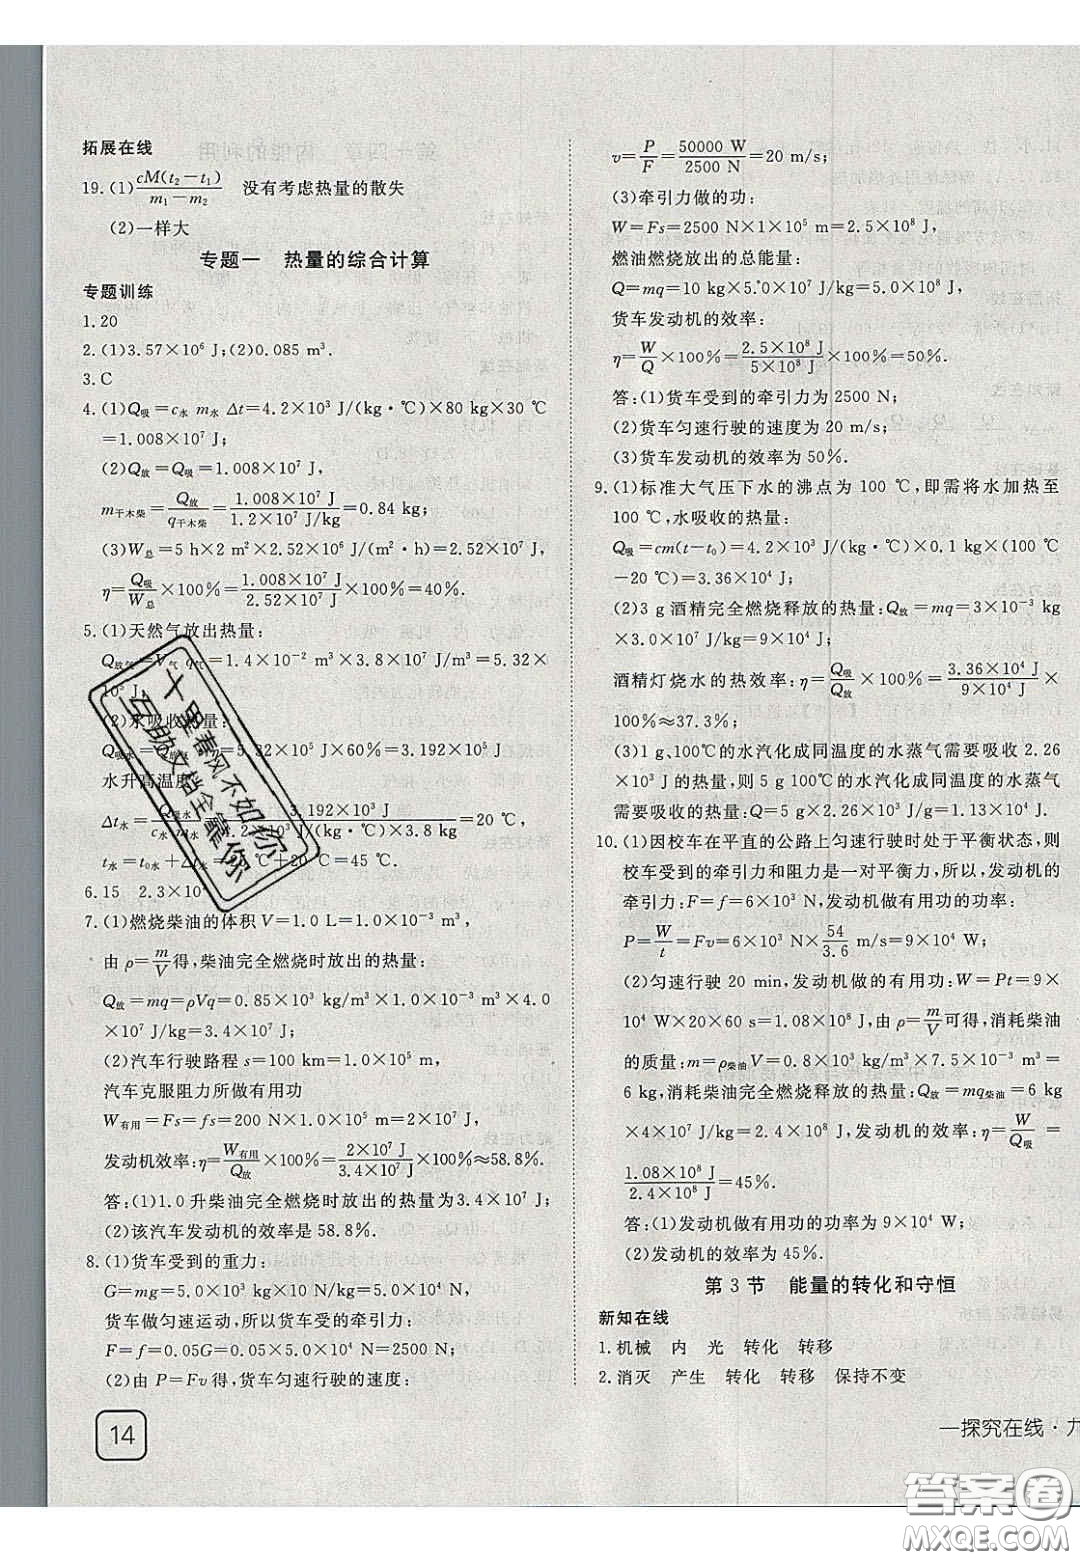 拓展在线
19.(1) cM(t₂−t₁)/(m₁−m₂) 没有考虑热量的散失
(2)一样大
专题一 热量的综合计算
专题训练
1.20
2.(1)3.57×10⁶ J;(2)0.085 m³.
3.C
4.(1)Q吸=c水 m水 Δt=4.2×10³ J/(kg·℃)×80 kg×30 ℃
=1.008×10⁷ J;
(2)Q放=Q吸=1.008×10⁷ J,
m干木柴=Q放/q干木柴=1.008×10⁷ J/1.2×10⁷ J/kg=0.84 kg;
(3)W总=5 h×2 m²×2.52×10⁶ J/(m²·h)=2.52×10⁷ J,
η=Q吸/W总×100%=1.008×10⁷ J/2.52×10⁷ J×100%=40%.
5.(1)天然气放出热量:
Q放气=V气 q气=1.4×10⁻² m³×3.8×10⁷ J/m³=5.32×
10⁵ J;
(2)水吸收热量:
5.32×10⁵ J×60%=3.192×10⁵ J
水升高温度:
Δt水=3.192×10⁵ J/4.2×10³ J/(kg·℃)×3.8 kg=20 ℃,
t水=t0水+Δt ℃+20 ℃=45 ℃.
6.15 2.3×10
7.(1)燃烧柴油的体积V=1.0 L=1.0×10⁻³ m³,
由 ρ=m/V得,柴油完全燃烧时放出的热量:
Q放=mq=ρVq=0.85×10³ kg/m³×1.0×10⁻³ m³×4.0
×10⁷ J/kg=3.4×10⁷ J;
(2)汽车行驶路程 s=100 km=1.0×10⁵ m,
汽车克服阻力所做有用功
W有用=Fs=fs=200 N×1.0×10⁵ m=2×10⁷ J,
发动机效率:η=W有用/Q放×100%=2×10⁷ J/3.4×10⁷ J×100%≈58.8%.
答:(1)1.0升柴油完全燃烧时放出的热量为3.4×10⁷ J;
(2)该汽车发动机的效率是58.8%.
8.(1)货车受到的重力:
G=mg=5.0×10³ kg×10 N/kg=5.0×10⁴ N,
货车做匀速运动,所以货车受到的牵引力:
F=f=0.05G=0.05×5.0×10⁴ N=2500 N;
(2)由 P=Fv 得,货车匀速行驶的速度:
14
v=P/F=50000 W/2500 N=20 m/s;
(3)牵引力做的功:
W=Fs=2500 N×1×10⁵ m=2.5×10⁸ J,
燃油燃烧放出的总能量:
Q=mq=10 kg×5.0×10⁷ J/kg=5.0×10⁸ J,
货车发动机的效率:
η=W/Q×100%=2.5×10⁸ J/5×10⁸ J×100%=50%.
答:(1)货车受到的牵引力为2500 N;
(2)货车匀速行驶的速度为20 m/s;
(3)货车发动机的效率为50%.
9.(1)标准大气压下水的沸点为100 ℃,即需将水加热至
100 ℃,水吸收的热量:
Q吸=cm(t−t₀)=4.2×10³ J/(kg·℃)×0.1 kg×(100 ℃
−20 ℃)=3.36×10⁴ J;
(2)3 g酒精完全燃烧释放的热量:Q放=mq=3×10⁻³ kg
×3.0×10⁷ J/kg=9×10⁴ J;
酒精灯烧水的热效率:η=Q吸/Q放×100%=3.36×10⁴ J/9×10⁴ J×
100%≈37.3%;
(3)1 g、100℃的水汽化成同温度的水蒸气需要吸收2.26
×10³ J的热量,则5 g 100℃的水汽化成同温度的水蒸气
需要吸收的热量:Q=5 g×2.26×10³ J/g=1.13×10⁴ J.
10.(1)因校车在平直的公路上匀速行驶时处于平衡状态,则
校车受到的牵引力和阻力是一对平衡力,所以,发动机的
牵引力:F=f=6×10³ N,发动机做有用功的功率:
P=W/t=Fv=6×10³ N×54/3.6 m/s=9×10⁴ W;
(2)匀速行驶20 min,发动机做的有用功:W=Pt=9×
10⁴ W×20×60 s=1.08×10⁸ J,由 ρ=m/V可得,消耗柴油
的质量:m柴油=ρ柴油V=0.8×10³ kg/m³×7.5×10⁻³ m³=
6 kg,消耗柴油完全燃烧释放的热量:Q放=mq柴油=6 kg
×4×10⁷ J/kg=2.4×10⁸ J,发动机的效率:η=W/Q吸=
1.08×10⁸ J/2.4×10⁸ J=45%.
答:(1)发动机做有用功的功率为9×10⁴ W;
(2)发动机的效率为45%.
第3节 能量的转化和守恒
新知在线
1.机械 内 光 转化 转移
2.消灭 产生 转化 转移 保持不变
一探究在线·九
十里春风不如你
互助文档全靠你
答案圈
MXQE.COM